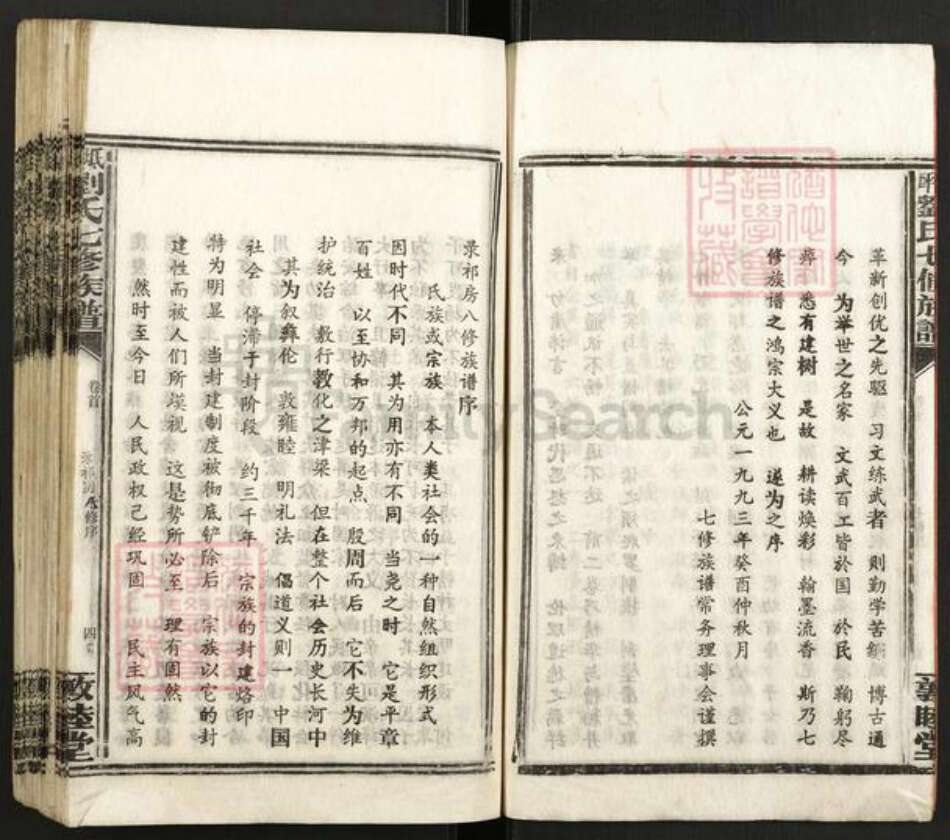 革新创优之先驱 习文练武者 则勤学苦练 博古通
今 为举世之名家 文武百工皆於国 於民 鞠躬尽
瘁 悉有建树 是故 耕读焕彩 翰墨流香 斯乃七
修族谱之鸿宗大义也 遂为之序
公元一九九三年癸酉仲秋月
七修族谱常务理事会谨撰
劉氏七修族譜
敦睦堂
录祁房八修族谱序
氏族或宗族 本人类社会的一种自然组织形式
因时代不同 其为用亦有不同 当尧之时 它是平章
百姓 以至协和万邦的起点 殷周而后 它不失为维
护统治 敷行教化之津梁 但在整个社会历史长河中
其为叙彝伦 敦雍睦 明礼法 倡道义则一 中国
社会 停滞于封阶段 约三千年 宗族的封建烙印
特为明显 当封建制度被彻底铲除后 宗族以它的封
建性而被人们所漠视 这是势所必至 理有固然
然时至今日 人民政权己经巩固 民主风气高
劉氏七修族譜
卷首
八修序
四
敦睦堂
FamilySearch